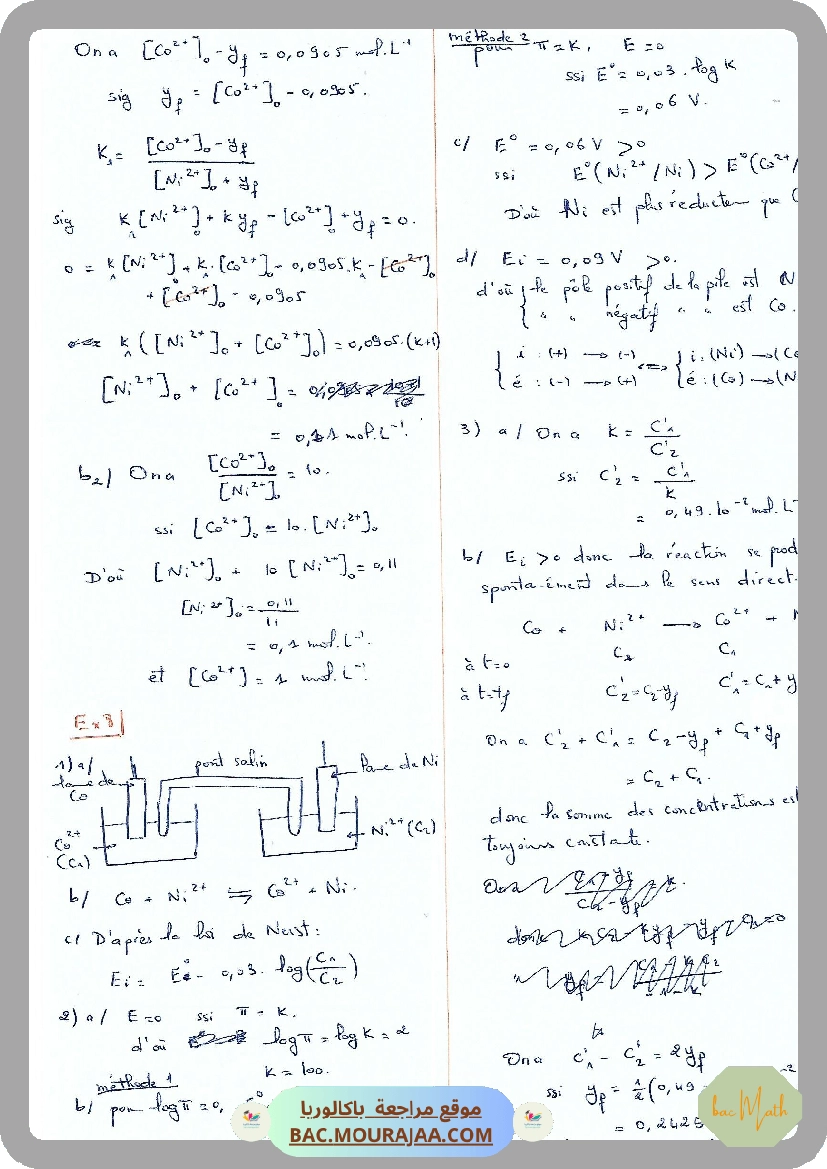 On a [Co²⁺]₀ - y_f = 0,0905 mol.L⁻¹
sig y_f = [Co²⁺]₀ - 0,0905.
K₁ = ([Co²⁺]₀ - y_f) / ([Ni²⁺]₀ + y_f)
sig K₁[Ni²⁺]₀ + K y_f - [Co²⁺]₀ + y_f = 0.
0 = K₁[Ni²⁺]₀ + K₁.[Co²⁺]₀ - 0,0905.K₁ - [Co²⁺]₀
+ [Co²⁺]₀ - 0,0905
K₁([Ni²⁺]₀ + [Co²⁺]₀) = 0,0905.(K+1)
[Ni²⁺]₀ + [Co²⁺]₀ =
= 0,11 mol.L⁻¹.
b₂/ On a [Co²⁺]₀ / [Ni²⁺]₀ = 10.
ssi [Co²⁺]₀ = 10.[Ni²⁺]₀
D'où [Ni²⁺]₀ + 10[Ni²⁺]₀ = 0,11
[Ni²⁺]₀ = 0,11 / 11
= 0,1 mol.L⁻¹.
et [Co²⁺] = 1 mol.L⁻¹
Ex 3
1) a/
lame de Co
pont salin
Lame de Ni
Co²⁺ (C₁)
Ni²⁺ (C₂)
b/ Co + Ni²⁺ ⇌ Co²⁺ + Ni.
c/ D'après la loi de Nernst:
Ei = E° - 0,03. log(C₁/C₂)
2) a/ E=0 ssi π = K.
d'où log π = log K = 2
K = 100.
méthode 1
b/ pour log π = 0,
méthode 2
pour π = K, E = 0
ssi E° = 0,03 . log K
= 0,06 V.
c/ E° = 0,06 V > 0
ssi E°(Ni²⁺/Ni) > E°(Co²⁺/
D'où Ni est plus réducteur que C
d/ Ei = 0,09 V > 0.
d'où { le pôle positif de la pile est N
" " négatif " " est Co.
{ i : (+) → (-) ⇔ { i : (Ni) → (Co
é : (-) → (+) é : (Co) → (N
3) a/ On a K = C'₁ / C'₂
ssi C'₂ = C'₁ / K
= 0,49.10⁻² mol.L⁻
b/ Ei > 0 donc la réaction se prod
spontanément dans le sens direct.
Co + Ni²⁺ → Co²⁺ + N
à t=0 C₂ C₁
à t=tf C'₂ = C₂-y_f C'₁ = C₁+y
On a C'₂ + C'₁ = C₂ - y_f + C₁ + y_f
= C₂ + C₁.
donc la somme des concentrations est
toujours constante.
On a C'₁ - C'₂ = 2y_f
ssi y_f = ½(0,49
= 0,2426
موقع مراجعة باكالوريا
BAC.MOURAJAA.COM
bac Math